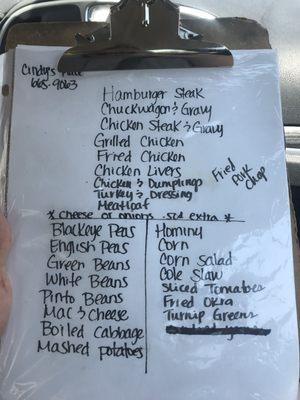 Cindy's Place
665-9063
Hamburger Steak
Chuckwagon & Gravy
Chicken Steak & Gravy
Grilled Chicken
Fried Chicken
Chicken Livers
Chicken & Dumplings
Turkey & Dressing
Meatloaf
Fried Pork Chop
* Cheese or onions .50¢ extra *
Blackeye Peas
English Peas
Green Beans
White Beans
Pinto Beans
Mac & Cheese
Boiled Cabbage
Mashed potatoes
Hominy
Corn
Corn Salad
Cole Slaw
Sliced Tomatoes
Fried Okra
Turnip Greens